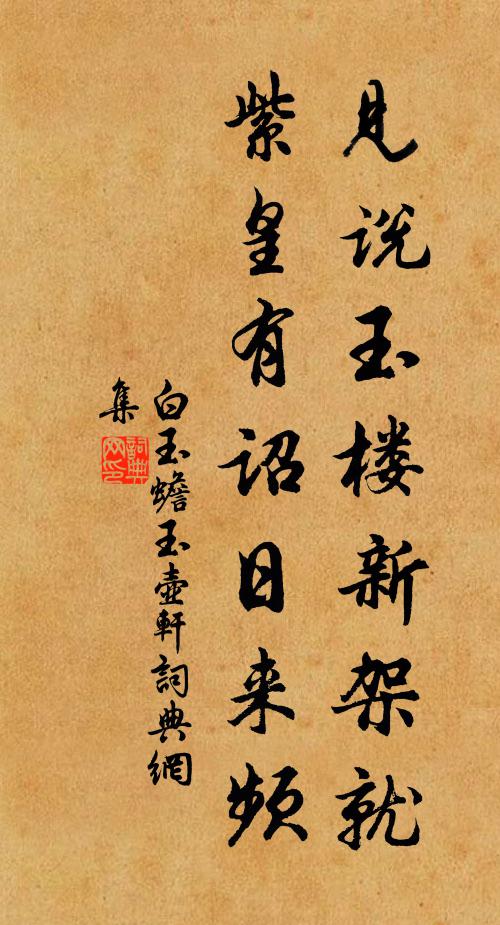 见说玉楼新架就
紫皇有诏日来频
白玉蟾玉壶轩詞典網
集
詞典
网印